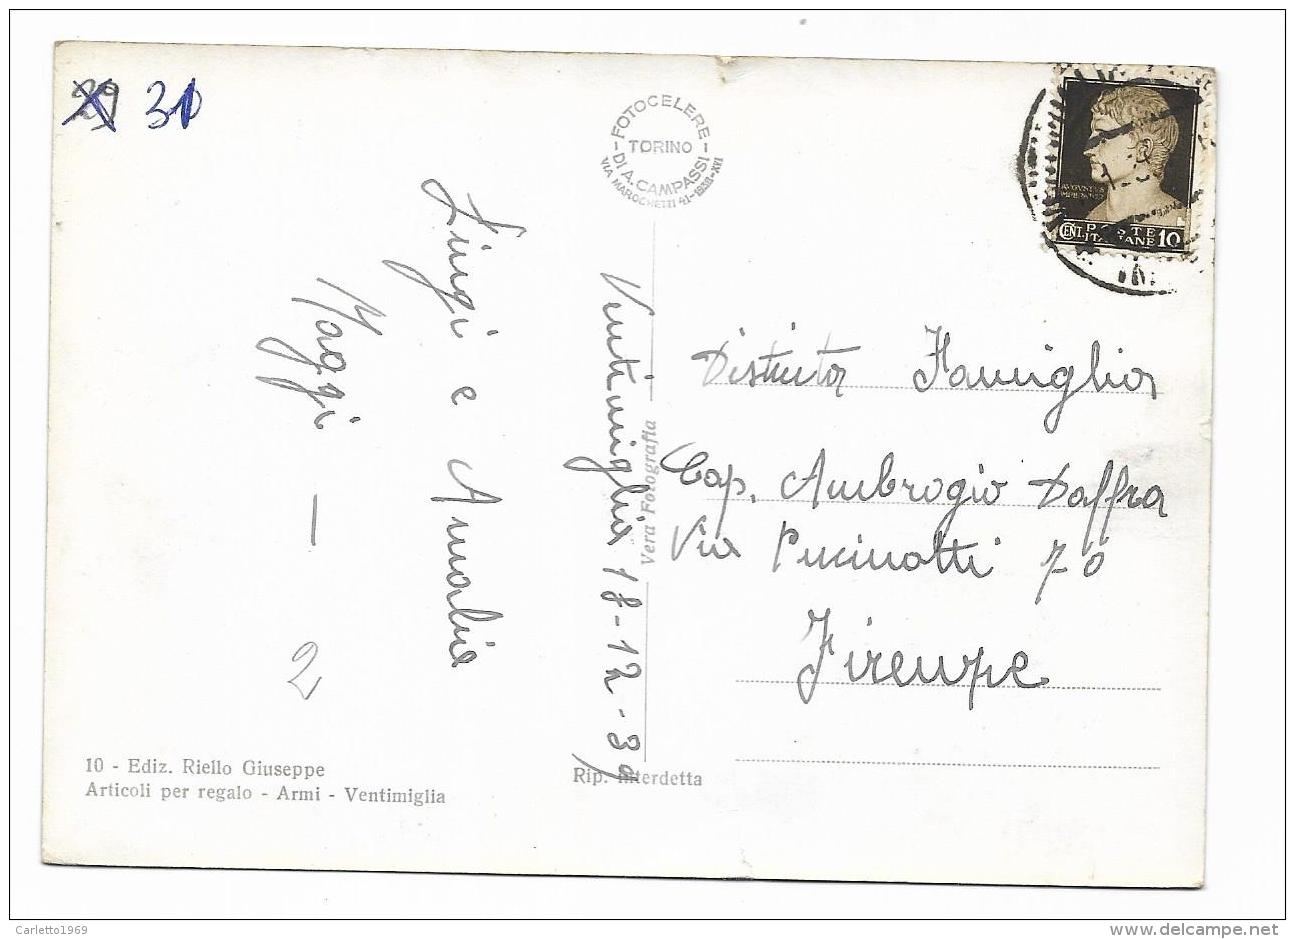 29 31
FOTOCELERE
TORINO
DI A. CAMPASSI
VIA MAROCHETTI 41-1938-XVI
AVGVSTVS
POSTE
CENT. ITALIANE 10
Luigi e Amalia
Maggi — 2
Ventimiglia 18-12-39
Vera Fotografia
Distinta Famiglia
Cap. Ambrogio Daffra
Via Pucinotti 70
Firenze
10 - Ediz. Riello Giuseppe
Articoli per regalo - Armi - Ventimiglia
Rip. interdetta
Carletto1969
www.delcampe.net